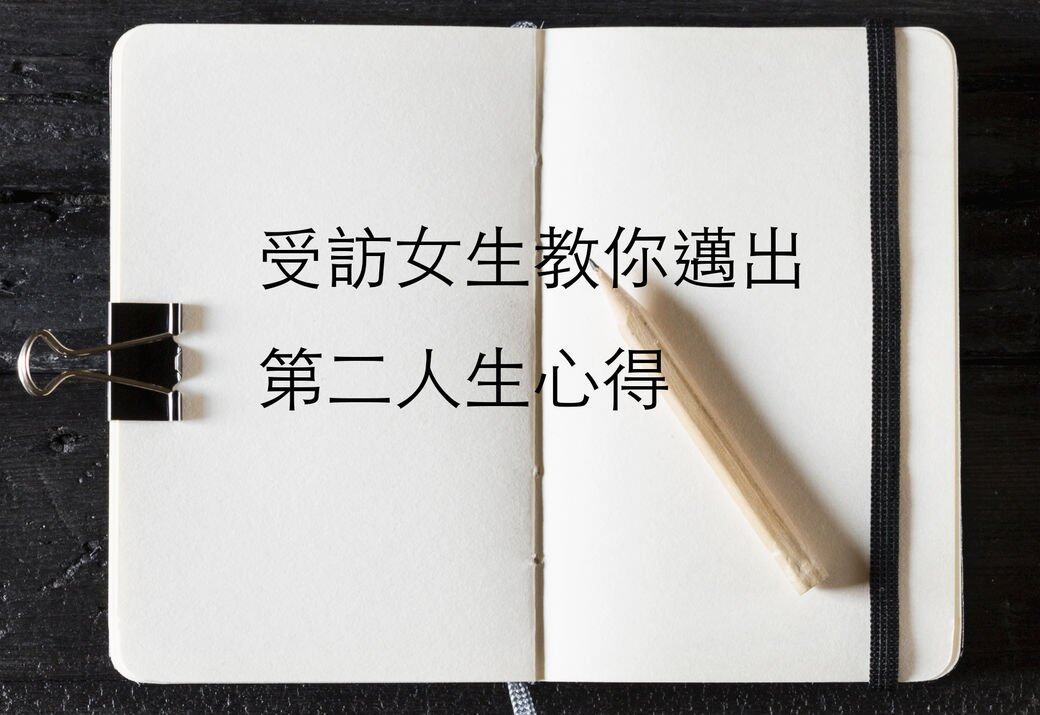 受訪女生教你邁出
第二人生心得